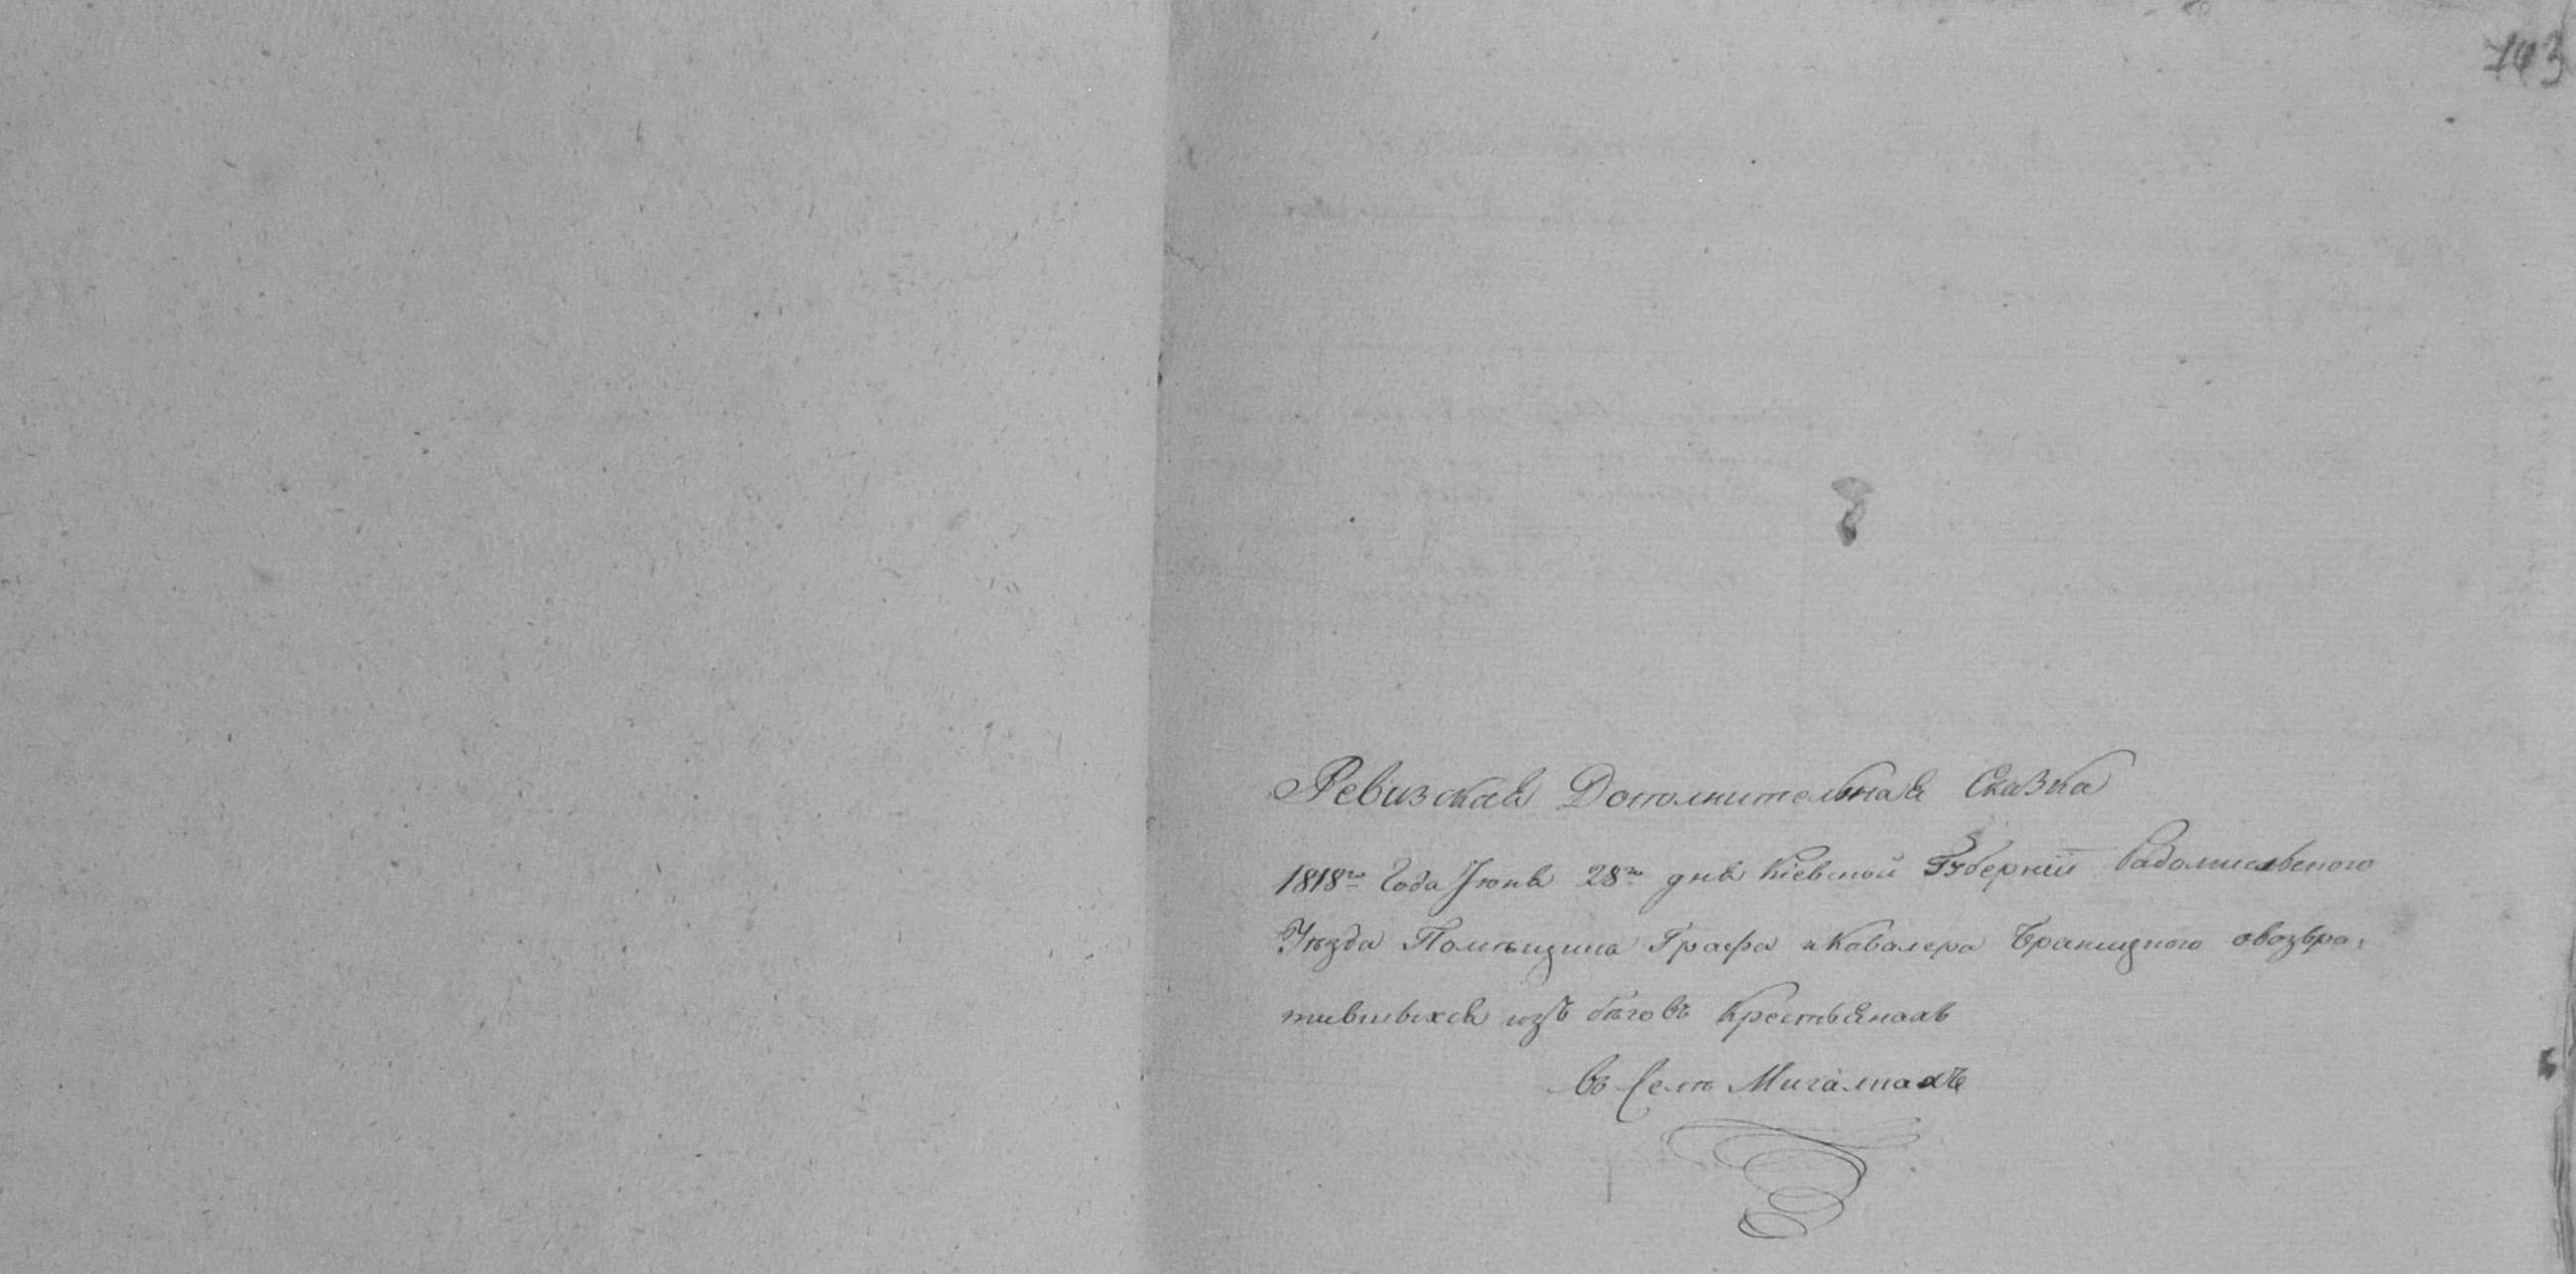 143
Ревизская Дополнительная Сказка
1818го Года Июня 28го дня Киевской Губернии Радомисльского
Уѣзда Помѣщика Графа и Кавалера Браницкого овозвра:
тившыхся изъ бѣговъ Крестьянахъ
Въ Селѣ Мигалкахъ